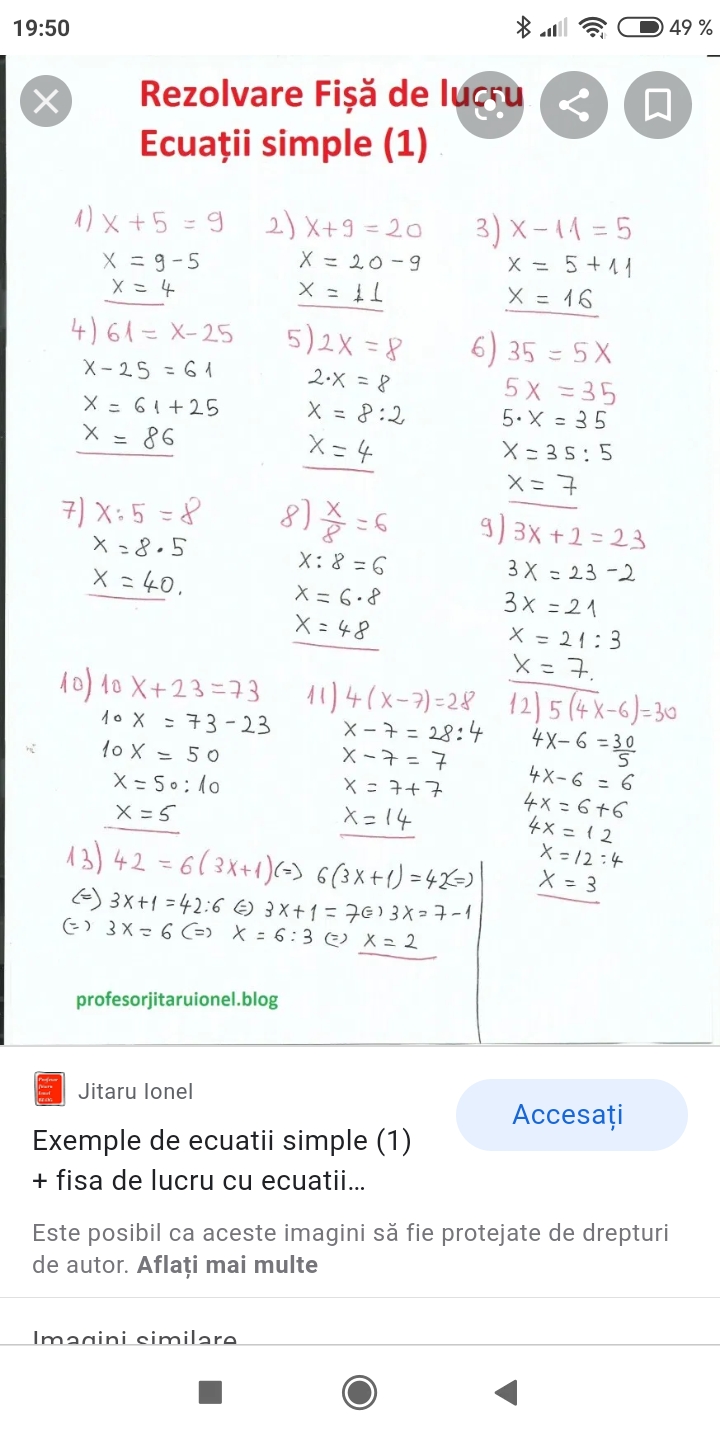 19:50
49 %
Rezolvare Fișă de lucru
Ecuații simple (1)
1) x + 5 = 9
x = 9 - 5
x = 4
2) x + 9 = 20
x = 20 - 9
x = 11
3) x - 11 = 5
x = 5 + 11
x = 16
4) 61 = x - 25
x - 25 = 61
x = 61 + 25
x = 86
5) 2x = 8
2·x = 8
x = 8:2
x = 4
6) 35 = 5x
5x = 35
5·x = 35
x = 35:5
x = 7
7) x:5 = 8
x = 8·5
x = 40.
8) x/8 = 6
x:8 = 6
x = 6·8
x = 48
9) 3x + 2 = 23
3x = 23 - 2
3x = 21
x = 21:3
x = 7.
10) 10x + 23 = 73
10x = 73 - 23
10x = 50
x = 50:10
x = 5
11) 4(x-7) = 28
x - 7 = 28:4
x - 7 = 7
x = 7+7
x = 14
12) 5(4x-6) = 30
4x - 6 = 30/5
4x - 6 = 6
4x = 6+6
4x = 12
x = 12:4
x = 3
13) 42 = 6(3x+1) (=) 6(3x+1) = 42 (=)
(=) 3x+1 = 42:6 (=) 3x+1 = 7 (=) 3x = 7-1
(=) 3x = 6 (=) x = 6:3 (=) x = 2
profesorjitaruionel.blog
Jitaru Ionel
Accesați
Exemple de ecuatii simple (1)
+ fisa de lucru cu ecuatii...
Este posibil ca aceste imagini să fie protejate de drepturi
de autor. Aflați mai multe
Imagini similare